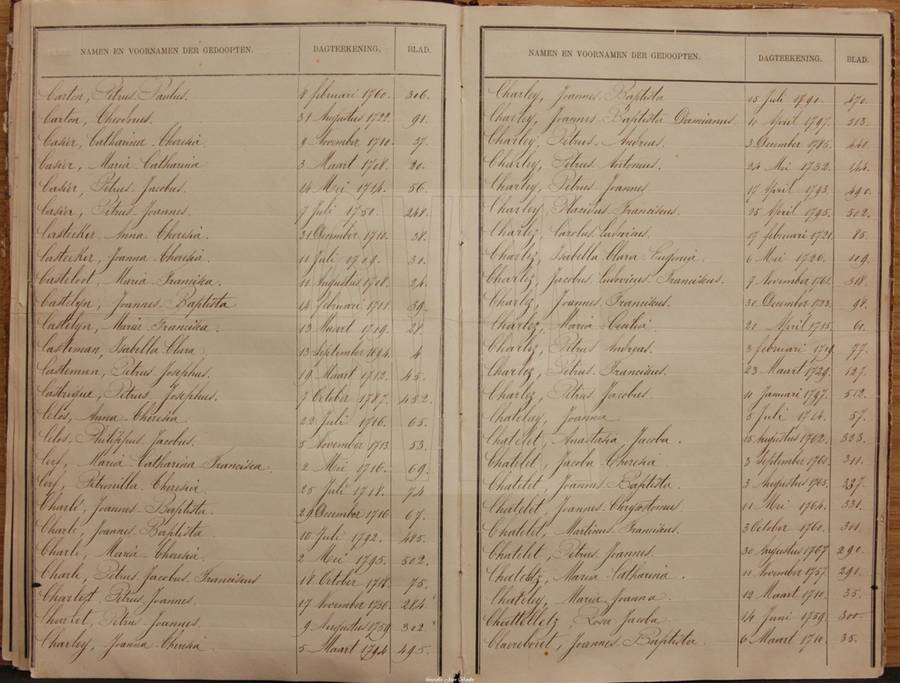 NAMEN EN VOORNAMEN DER GEDOOPTEN. DAGTEEKENING. BLAD.
Carton, Petrus Paulus. 8 februari 1760. 306.
Carton, Theodorus. 31 Augustus 1722. 91.
Casier, Catharina Theresia 9 November 1710. 37.
Casier, Maria Catharina 3 Maart 1708. 20.
Casier, Petrus Jacobus. 14 Mei 1714. 56.
Casier, Petrus Joannes. 7 Juli 1750. 248.
Casteeker, Anna Theresia. 21 December 1710. 38.
Casteeker, Joanna Theresia. 11 Juli 1709. 31.
Casteloot, Maria Francisca. 11 Augustus 1708. 24.
Castelyn, Joannes Baptista 14 februari 1711. 39.
Castelyn, Maria Francisca. 13 Maart 1709. 28.
Casteman, Isabella Clara 13 September 1694. 4
Casteman, Petrus Josephus. 19 Maart 1712. 45.
Castrique, Petrus Josephus. 7 October 1787. 452.
Celos, Anna Theresia 22 Juli 1716. 65.
Celos, Philippus Jacobus. 5 November 1713. 53.
Cerf, Maria Catharina Francisca 2 Mei 1716. 69.
Cerf, Petronilla Theresia 25 Juli 1718. 74
Charle, Joannes Baptista. 29 December 1716. 67.
Charle, Joannes Baptista 10 Juli 1792. 485.
Charle, Maria Theresia 2 Mei 1795. 502.
Charle, Petrus Jacobus Franciscus 18 October 1718. 75.
Charlet, Petrus Joannes. 17 November 1756. 284
Charlet, Petrus Joannes. 9 Augustus 1759. 302.
Charley, Joanna Theresia 5 Maart 1794. 495.
NAMEN EN VOORNAMEN DER GEDOOPTEN. DAGTEEKENING. BLAD.
Charley, Joannes Baptista 15 Juli 1790. 470.
Charley, Joannes Baptista Damianus. 11 April 1797. 513.
Charley, Petrus Andreas 3 December 1785. 440.
Charley, Petrus Antonius. 24 Mei 1732. 144.
Charley, Petrus Joannes 17 April 1793. 490.
Charley, Placidus Franciscus. 25 April 1795. 502.
Charlez, Carolus Ludovicus. 19 februari 1721. 85.
Charlez, Isabella Clara Eugenia 6 Mei 1726. 109.
Charlez, Jacobus Ludovicus Franciscus. 7 November 1761. 318.
Charlez, Joannes Franciscus. 30 December 1723. 98.
Charlez, Maria Cecilia 21 April 1715. 61.
Charlez, Petrus Andreas. 3 februari 1719. 77.
Charlez, Petrus Franciscus. 23 Maart 1729. 127.
Charlez, Petrus Jacobus 11 Januari 1797. 512.
Chatelay, Joanna 5 Juli 1714. 57.
Chatelet, Anastasia Jacoba. 15 Augustus 1762. 323.
Chatelet, Jacoba Theresia 3 September 1761. 311.
Chatelet, Joannes Baptista. 3 Augustus 1765. 337.
Chatelet, Joannes Chrysostomus 11 Mei 1764. 331.
Chatelet, Martinus Franciscus. 3 October 1760. 308.
Chatelet, Petrus Joannes. 30 Augustus 1767 290.
Chateletz, Maria Catharina. 11 November 1757. 290.
Chateley, Maria Joanna 12 Maart 1710. 35.
Chattelletz, Rosa Jacoba 14 Juni 1759. 300.
Claerebout, Joannes Baptista. 6 Maart 1710. 35.